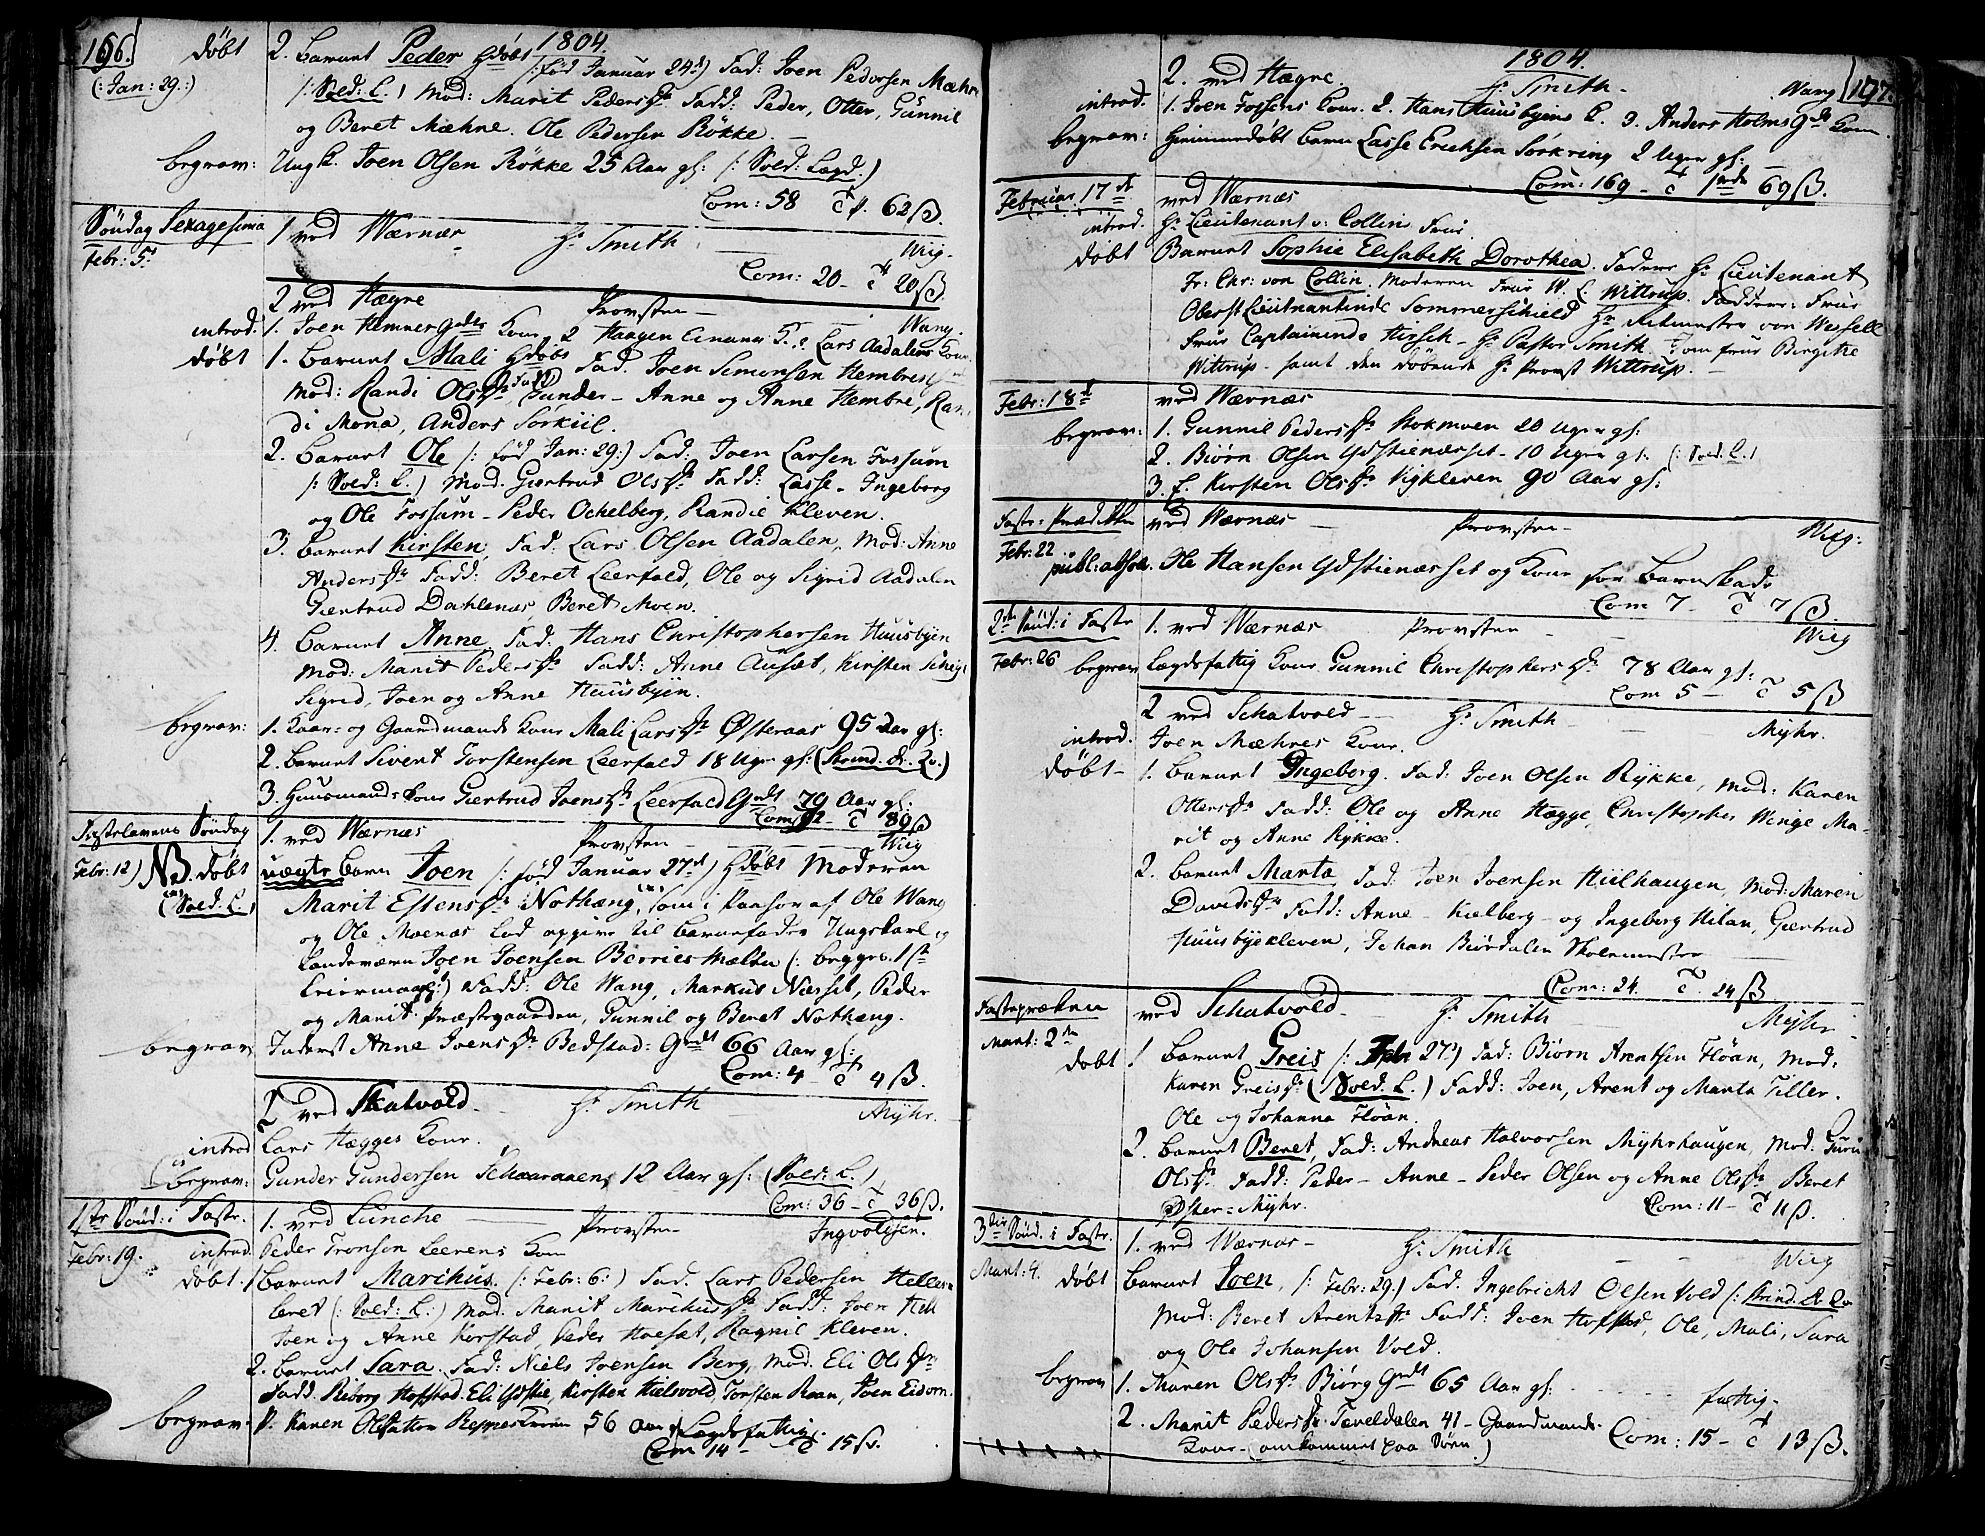 196.
1804.
(:Jan: 29:)
døbt 2. Barnet Peder hdøbt (:fød Januar 24de) Fad: Joen Pedersen Mæhre
(: Sold: L.) Mod: Marit Pedersdr Fadd: Peder, Otter, Gunnil
og Beret Mæhre. Ole Pedersen Røkke.
begrav: Ungk. Joen Olsen Røkke 25 Aar gl: (: Sold: Lægd:)
Com: 58 C 62 ß.
Søndag Sexagesima
Febr: 5te
1 ved Wærnæs Hr Smith Wiig.
Com: 20 - C 20 ß.
2 ved Hægre Provsten Wang.
introd: 1. Joen Hembre Kone 2 Haagen K. 3 Lars Aadalens Kone.
døbt 1. Barnet Mali hdøbt Fad: Joen Simonsen Hembre
Mod: Randi Olsdr Fadd: Gunder - Anne og Anne Hembre, Ran
di Mona, Anders Sørkiil.
2. Barnet Ole (: fød Jan: 29:) Fad: Joen Larsen Fossum
(: Sold: L.) Mod: Giertrud Olsdr Fadd: Lasse - Ingeborg
og Ole Fossum - Peder Ochelberg, Randie Kleven.
3. Barnet Kirsten, Fad: Lars Olsen Aadalen, Mod: Anne
Andersdr Fadd: Beret Leerfald, Ole og Sigrid Aadalen
Giertrud Dahlenæs Beret Moen.
4. Barnet Anne Fad: Hans Christophersen Huusbyen
Mod: Marit Pedersdr Fadd: Anne Auset, Kirsten
Sigrid, Joen og Anne Huusbyen.
begrav: 1. Kaar- og Gaardmands Kone Mali Larsdr Østeraas 95 Aar gl:
2. Barnet Sivert Torstensen Leerfald 18 Uger gl: (Strind. A: Qv.)
3. Huusmands Kone Giertrud Joensdr Leerfald 79 Aar gl:
Com: C 89 ß
Fastelavens Søndag
Febr: 12)
1. ved Wærnæs Provsten Wiig
NB. døbt uægte Barn Joen (: fød Januar 27de) hdøbt Moderen
(Sold: L.) Marit Estensdr Nothæng, som i Paahør af Ole Wang
og Ole Moenæs lod opgive til Barnefader Ungkarl og
Landeværn Joen Joensen Berries Mælen (: begges 1ste
Leiermaal:) Fadd: Ole Wang, Markus Næsset, Peder
og Marit Præstegaarden, Gunnil og Beret Nothæng.
begrav: Inderst Anne Joensdr Bedstad: 66 Aar gl:
Com: 4 - C 4 ß.
2 ved Skatvold Hr Smith Myhr.
introd Lars Hægges Kone.
begrav: Gunder Gundersen 12 Aar gl: (Sold: L.)
Com: 36 - C 36 ß.
1ste Sønd: i Faste.
Febr: 19.
1. ved Lunche Provsten Ingvoldsen.
introd Peder Tronsen Leerens Kone
døbt 1. Barnet Marchus. (: Febr: 6:) Fad. Lars Pedersen Helle
beret (: Sold: L.) Mod: Marit Marchusdr Fadd: Joen Hell
Joen og Anne Korstad, Peder Hoesæt, Ragnil Kleven.
2. Barnet Sara. Fad: Niels Joensen Berg, Mod. Eli Olsdr
Fadd. Riborg Hofstad. Eli Ydstie, Kirsten Hielsvold, Torsten Raan, Joen Eidom.
begrav: P. Karen Olsdatter 56 Aar Lægdsfattig:
Com 14 - C 15 ß.
1804.
197.
2. ved Hægre. Hr Smith - Wang
introd. 1. Joen Fossens Kone. 2. Hans Huusbyens K. 3. Anders Holms Kone.
begrav: Hiemmedøbt Barn Lasse Erichsen Sørkring 2 Uger gl:
Com: 169 - C 69 ß.
Februar 17de ved Wærnæs
introd. Hr Lieutenant v: Collins Frue
døbt Barnet Sophie Elisabeth Dorothea. Faderen Hr Lieutenant
Fr: Chr: von Collin. Moderen Frue W. C. Wittrup. Faddere: Frue
Oberst Lieutnantinde Sommerschield Hr Ritmester von Wessell
Frue Captaininde Hirsch - Hr Pastor Smith. Jomfrue Birgithe
Wittrup - samt den døbende Hr Provst Wittrup.
Febr: 18de ved Wærnæs
begrav: 1. Gunnil Pedersdr Stokmoen 20 Uger gl:
2. Biørn Olsen Ydstienæsset - 10 Uger gl: (: Sold: L:)
3. F. Kirsten Olsdr Vigkleven 90 Aar gl:
Faste: Prædiken
Febr: 22
ved Wærnæs Provsten Wiig:
publ: absol. Ole Hansen Ydstienæsset og Kone for Barneskade
Com 7 - C 7 ß.
2den Sønd: i Faste
Febr: 26
1. ved Wærnæs Provsten Wiig
begrav Lægdsfattig Kone Gunnil Christophersdr 78 Aar gl:
Com 5 - C 5 ß
2 ved Schatvold - Hr Smith - Myhr.
introd. Joen Mæhres Kone.
døbt - 1. Barnet Ingeborg. Fad: Joen Olsen Rykke, Mod: Karen
Ottersdr Fadd: Ole og Anne Hægge, Christopher Wenge Ma-
rit og Anne Rykke.
2. Barnet Marta Fad: Joen Joensen Hiilhaugen, Mod: Maren
Davidsdr Fadd: Anne - Kielberg - og Ingeborg Hilan, Giertrud
Huusbyekleven, Johan Biørdalen Skolemester
Com: 24. C 24 ß
Fasteprækenen
Mart: 2den
ved Schatvold Hr Smith Myhr
døbt 1 Barnet Greis (: Febr 27:) Fad: Biørn Arentsen Fløan, Mod:
Karen Greisdr (Sold: L.) Fadd: Joen, Arent og Marta Tiller.
Ole og Johanna Fløan.
2. Barnet Beret, Fad: Andreas Halvorsen Myhrhaugen, Mod: Guru
Olsdr Fadd: Peder - Anne - Peder Olsen og Anne Olsdr Beret
Øster-Myhr. Com: 11 - C 11 ß.
3die Sønd. i Faste.
Mart: 4.
1. ved Wærnæs - Hr Smith Wiig
døbt Barnet Joen, (: Febr: 29:) Fad. Ingebricht Olsen Vold (: Strind. A. Qv
Mod: Beret Arentsdr Fadd: Joen Hofstad, Ole, Mali, Sara
og Ole Johansen Vold.
begrav 1. Maren Olsdr Biørg 65 Aar gl: fattig
2. Marit Pedersdr Teveldalen 41 - Gaardmands-
Kone - (omkommet paa Søen) Com: 15 - C 13 ß.